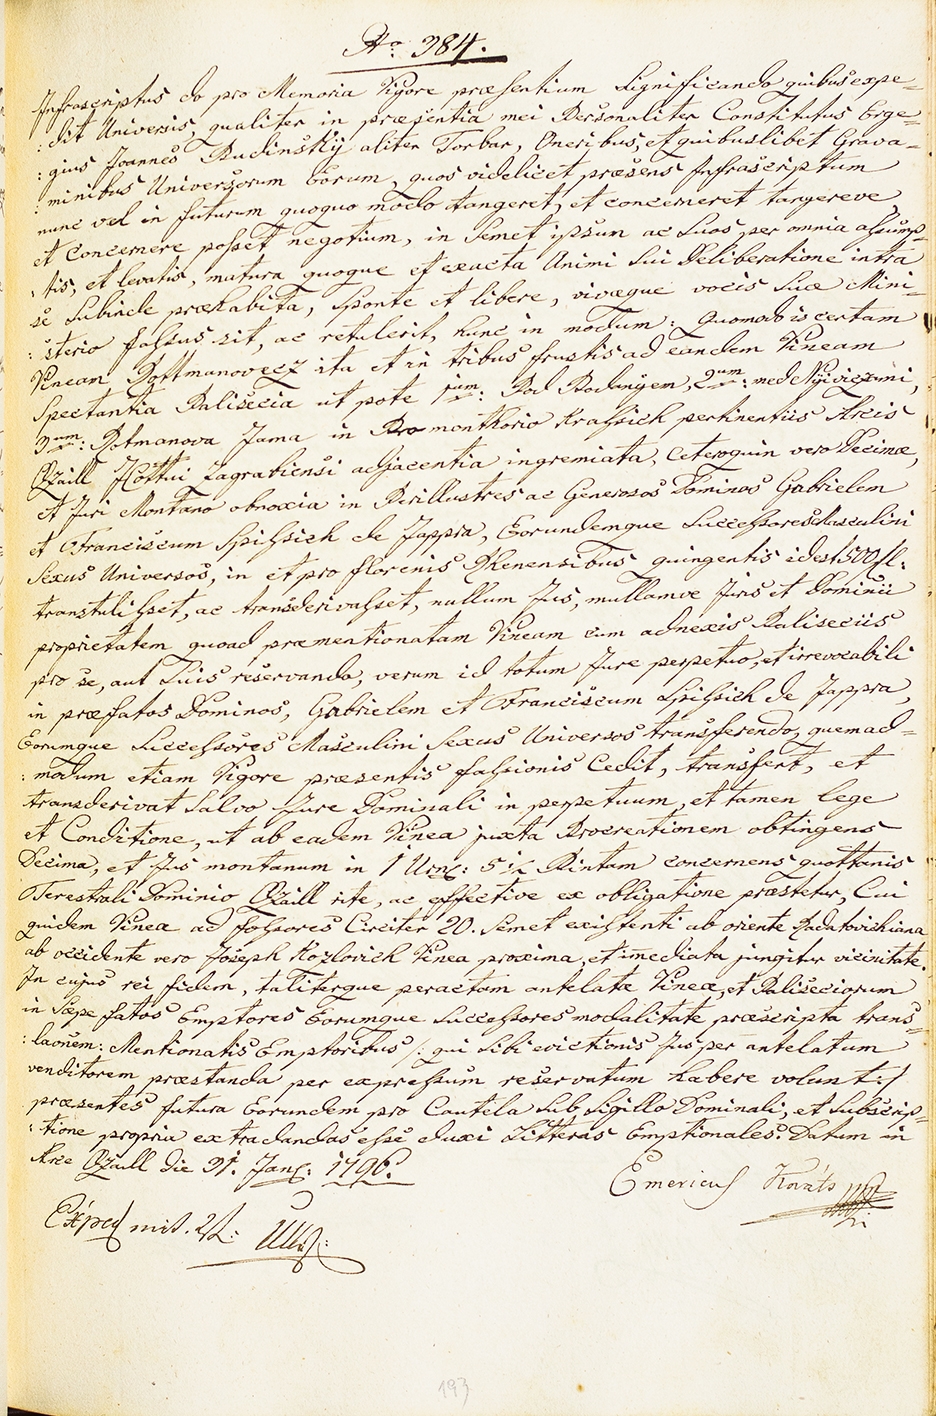 No. 384.
Infrascriptus do pro Memoria Vigore præsentium Significando quibus expe=
:dit Universis, qualiter in præsentia mei Personaliter Constitutus Erge=
:gius Joannes Budinskÿ aliter Torbar, Oneribus, et quibuslibet Grava=
:minibus Universorum Eorum, quos videlicet præsens Infrascriptum
nunc vel in futurum quoquo modo tangeret, et concerneret tangereve,
et concernere posset negotium, in Semet ipsum ac Suos per omnia assump=
:tis, et levatis, matura quoque et exacta Animi Sui Deliberatione intra
se Subinde præhabita, Sponte et libere, vivæque vocis Suæ Mini=
:sterio fassus sit, ac retulerit, hunc in modum: Quomodo is certam
Vineam Rottmanovecz ita et in tribus frustis ad eandem Vineam
Spectantia Paliseccia ut pote 1um: Pod Rodnyem, 2um: med Nyiviczami,
3um: Rotmanova Jama in Promonthorio Krassich pertinentiis Arcis
Ozaill Cottui Zagrabiensi adjacentia ingremiata, ceteroquin vero Decimæ,
et Juri Montano obnoxia in Perillustres ac Generosos Dominos Gabrielem
et Franciscum Spissich de Jappra, Eorundemque Successores Masculini
Sexus Universos, in et pro florenis Rhenensibus quingentis id est 500 fl.
transtulisset, ac transderivasset, nullum Jus, nullamve Juris et Dominii
proprietatem quoad præmentionatam Vineam cum adnexis Paliseciis
pro se, aut Suis reservando, verum id totum Jure perpetuo, et irrevocabili
in præfatos Dominos, Gabrielem et Franciscum Spissich de Jappra,
Eorumque Successores Masculini Sexus Universos transferendo, quemad=
:modum etiam Vigore præsentis fassionis Cedit, transfert, et
transderivat Salvo Jure Dominali in perpetuum, et tamen lege
et Conditione, ut ab eadem Vinea juxta Procreationem obtingens
Decima, et Jus montanum in 1 Urn: 5 1/2 Pintam concernens quottanis
Terestrali Dominio Ozaill rite, ac effective ex obligatione præstetur, Cui
quidem Vineæ ad fossores Circiter 20. Semet existenti ab oriente Radatovichiana
ab occidente vero Joseph Kozlovich Vinea proxima, et imediata jungitur vicinitate.
In cujus rei fidem, talitergue peractam antelatæ Vineæ, et Paliseciorum
in Sæpe fatos Emptores Eorumque Successores modalitate præscripta trans=
:laonem: Mentionatis Emptoribus /: qui Sibi evictionis Jus per antelatum
venditorem præstanda per expressum reservatum habere volunt :/
præsentes futura Eorundem pro Cautela Sub Sigillo Dominali, et Subscrip=
:tione propria extradandas esse duxi Litteras Emptionales. Datum in
Arce Ozaill die 31. Jan: 1796.
Emericus
Exped mit. 2
193